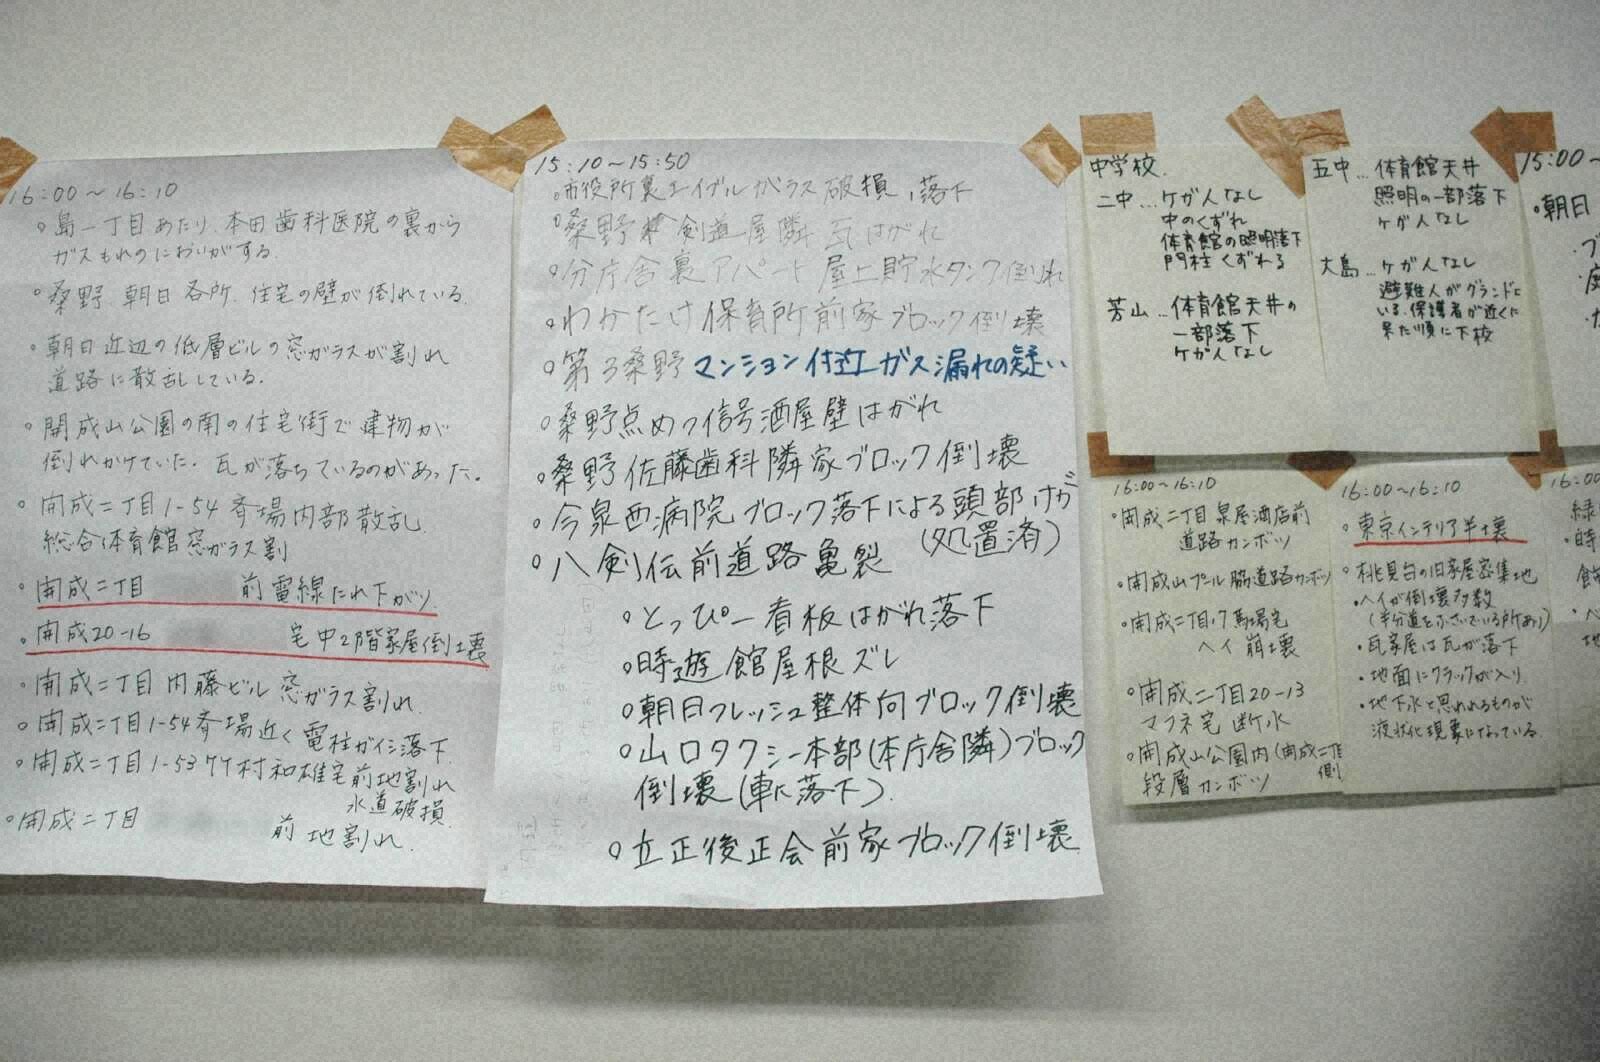 16:00～16:10
○島一丁目あたり.本田歯科医院の裏から
ガスもれのにおいがする.
○桑野.朝日各所.住宅の壁が倒れている.
○朝日近辺の低層ビルの窓ガラスが割れ
道路に散乱している.
○開成山公園の南の住宅街で建物が
倒れかけていた.瓦が落ちているのがあった.
○開成二丁目1-54斉場内部散乱
総合体育館窓ガラス割
○開成二丁目 前電線たれ下がり
○開成20-16 宅中2階家屋倒壊
○開成二丁目内藤ビル窓ガラス割れ.
○開成二丁目1-54斉場近く電柱ガイシ落下.
○開成二丁目1-53竹村和雄宅前地割れ
水道破損.
○開成二丁目 前地割れ.
15:10～15:50
○市役所裏エイブルガラス破損,落下
○桑野 剣道一屋隣瓦はがれ
○分庁舎裏アパート屋上貯水タンク倒れ
○わかたけ保育所前家ブロック倒壊
○第3桑野マンション付近ガス漏れの疑い
○桑野点めつ信号酒屋壁はがれ
○桑野佐藤歯科隣家ブロック倒壊
○今泉西病院ブロック落下による頭部けが
(処置済)
○八剣伝前道路亀裂
○とっぴー看板はがれ落下
○時遊館屋根ズレ
○朝日フレッシュ整体向ブロック倒壊
○山口タクシー本部(本庁舎隣)ブロック
倒壊(車に落下).
○立正後正会前家ブロック倒壊
中学校.
二中…ケガ人なし
中のくずれ
体育館の照明落下
門柱くずれる
芳山…体育館天井の
一部落下
ケガ人なし
五中…体育館天井
照明の一部落下
ケガ人なし
大島…ケガ人なし
避難人がグランドに
いる.保護者が近くに
来た順に下校
15:00～
○朝日
16:00～16:10
○開成二丁目泉屋酒店前
道路カンボツ
○開成山プール脇道路カンボツ
○開成二丁目.7馬場宅
ヘイ崩壊
○開成二丁目20-13
マフネ宅断水
○開成山公園内(開成二丁目側
段層カンボツ
16:00～16:10
○東京インテリア半壊
○桃見台の旧家屋密集地
・ヘイが倒壊多数
(半分道をふさいでいる所あり)
・瓦家屋は瓦が落下
・地面にクラックが入り.
・地下水と思われるものが
液状化現象になっている.
16:00